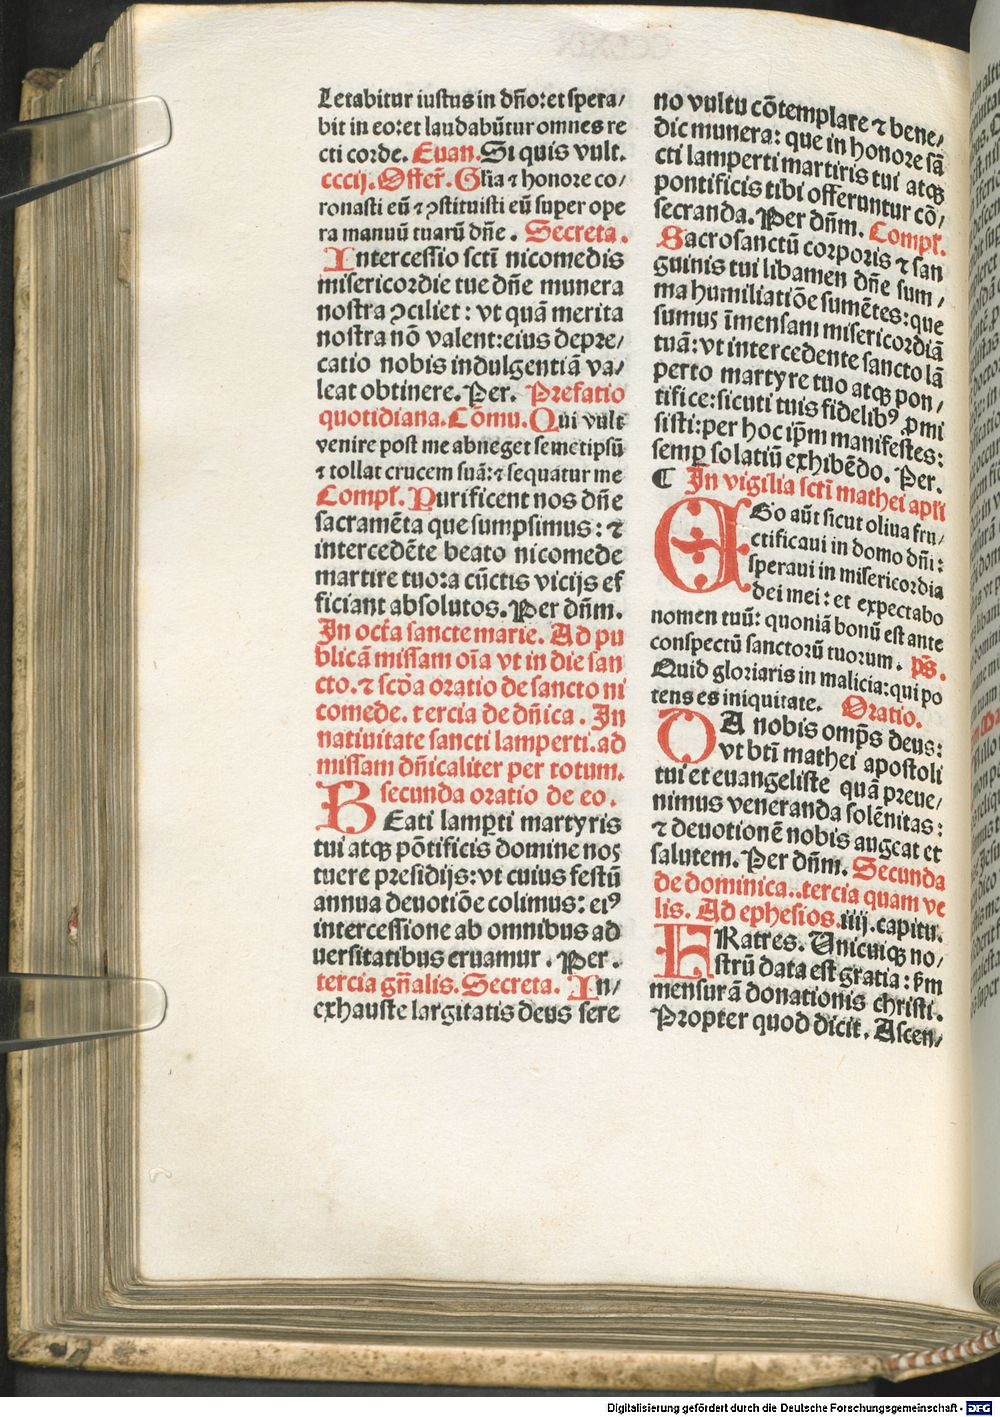 Letabitur iustus in dño: et spera/
bit in eo: et laudabũtur omnes re
cti corde. Euan. Si quis vult.
cccij. Offer̃. Glia ⁊ honore co/
ronasti eũ ⁊ ꝯstituisti eũ super ope
ra manuũ tuarũ dñe. Secreta.
Intercessio scti nicomedis
misericordie tue dñe munera
nostra ꝯciliet: vt quã merita
nostra nõ valent: eius depre/
catio nobis indulgentiã va/
leat obtinere. Per. Prefatio
quotidiana. Cõmu. Qui vult
venire post me abneget semetipsũ
⁊ tollat crucem suã: ⁊ sequatur me
Compl̃. Purificent nos dñe
sacramẽta que sumpsimus: ⁊
intercedẽte beato nicomede
martire tuo: a cũctis vicijs ef
ficiant absolutos. Per dñm.
In octa sancte marie. Ad pu
blicã missam oĩa vt in die san
cto. ⁊ scda oratio de sancto ni
comede. tercia de dñica. In
natiuitate sancti lamperti. ad
missam dñicaliter per totum.
secunda oratio de eo.
BEati lamꝑti martyris
tui atqꝫ põtificis domine nos
tuere presidijs: vt cuius festũ
annua deuotiõe colimus: eiꝰ
intercessione ab omnibus ad
uersitatibus eruamur. Per.
tercia gñalis. Secreta. In/
exhauste largitatis deus sere
no vultu cõtemplare ⁊ bene/
dic munera: que in honore sã
cti lamperti martiris tui atqꝫ
pontificis tibi offeruntur cõ/
secranda. Per dñm. Compl̃.
Sacrosanctũ corporis ⁊ san
guinis tui libamen dñe sum/
ma humiliatiõe sumẽtes: que
sumus ĩmensam misericordiã
tuã: vt intercedente sancto lã
perto martyre tuo atqꝫ pon/
tifice: sicuti tuis fidelibꝰ ꝓmi
sisti: per hoc ip̃m manifestes:
semꝑ solatiũ exhibẽdo. Per.
¶ In vigilia sctĩ mathei apl̃i
EGo aũt sicut oliua fru/
ctificaui in domo dñi:
speraui in misericordia
dei mei: et expectabo
nomen tuũ: quoniã bonũ est ante
conspectũ sanctorũ tuorum. p̃s.
Quid gloriaris in malicia: qui po
tens es iniquitate. Oratio.
DA nobis omp̃s deus:
vt btĩ mathei apostoli
tui et euangeliste quã preue/
nimus veneranda solẽnitas:
⁊ deuotionẽ nobis augeat et
salutem. Per dñm. Secunda
de dominica.. tercia quam ve
lis. Ad ephesios. iiij. capitu.
FRatres. Unicuiqꝫ no/
strũ data est gratia: s̃m
mensurã donationis christi.
Propter quod dicit. Ascen/
Digitalisierung gefördert durch die Deutsche Forschungsgemeinschaft - DFG